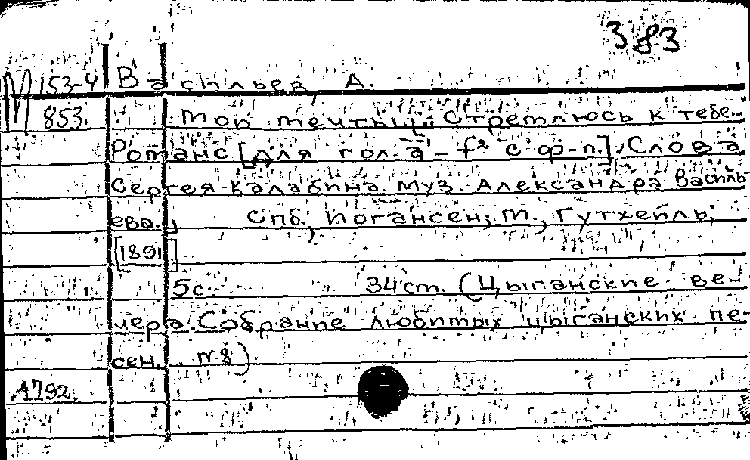 383
М 153-4 Васильев, А.
853. Мои мечты.. Стремлюсь к тебе.
Романс [для гол. a - f² с ф-п.]. Слова
Сергея Калабина. Муз. Александра Василь
ева.. Спб, Иогансен; М., Гутхейль,
[1891]
5с. 34 cm. (Цыганские ве-
чера. Собрание любимых цыганских пе-
сен. № 8)
А792.